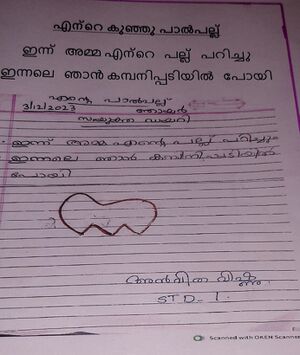 എന്റെ കുഞ്ഞു പാൽപല്ല്
ഇന്ന് അമ്മ എന്റെ പല്ല് പറിച്ചു
ഇന്നലെ ഞാൻ കമ്പനിപ്പടിയിൽ പോയി
എന്റെ പാൽപല്ല്
3/12/2023 ഞായർ
സംയുക്ത ഡയറി
ഇന്ന് അമ്മ എന്റെ പല്ല് പറിച്ചു
ഇന്നലെ ഞാൻ കമ്പനിപ്പടിയിൽ
പോയി
അൻവിത വിഷ്ണു
STD-1.
Scanned with OKEN Scanner